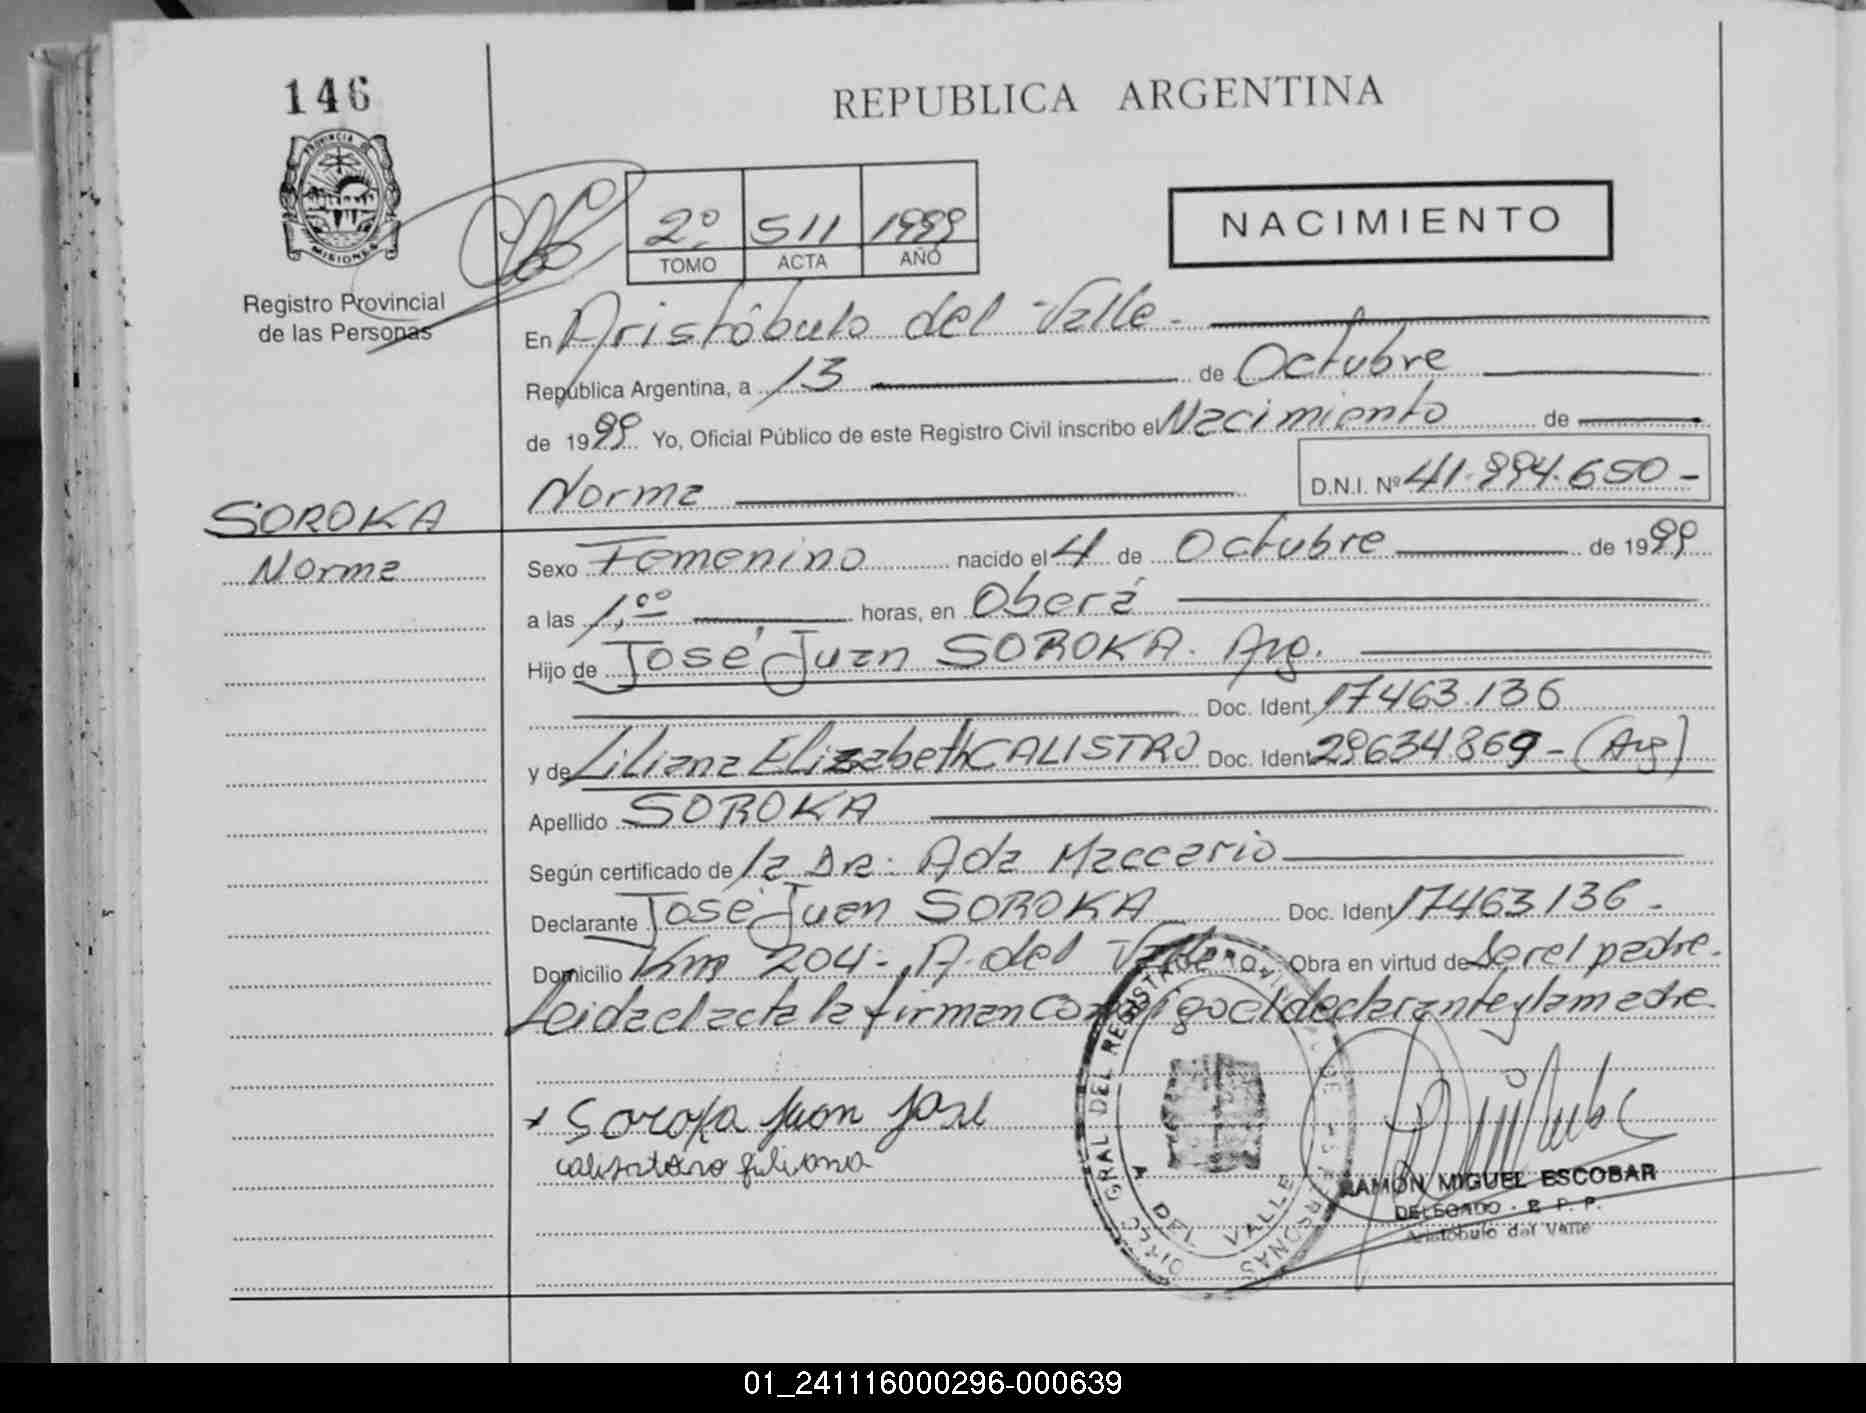 146
REPUBLICA ARGENTINA
PROVINCIA DE
MISIONES
Registro Provincial
de las Personas
2º 511 1999
TOMO ACTA AÑO
NACIMIENTO
En Aristóbulo del Valle -
República Argentina, a 13 de Octubre
de 1999 Yo, Oficial Público de este Registro Civil inscribo el Nacimiento de
Norma D.N.I. Nº 41.994.650-
SOROKA
Norma
Sexo Femenino nacido el 4 de Octubre de 1999
a las 1,00 horas, en Oberá
Hijo de José Juan SOROKA. Arg.
Doc. Ident. 17463.136
y de Liliana Elizabeth CALISTRO Doc. Ident. 29634869- (Arg)
Apellido SOROKA
Según certificado de la Dra. Ada Maccario
Declarante José Juan SOROKA Doc. Ident. 17463136-
Domicilio Km 204-A. del Valle Obra en virtud de Ser el padre.
Leida el acta la firman conmigo el declarante y la madre.
x Soroka Juan José
liliana
DIREC. GRAL. DEL REGISTRO PROVINCIAL DE LAS PERSONAS
A. DEL VALLE
RAMON MIGUEL ESCOBAR
DELEGADO - R. P. P.
Aristóbulo del Valle
01_241116000296-000639